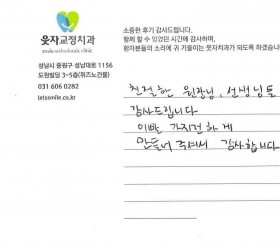 소중한 후기 감사드립니다.
함께 할 수 있었던 시간에 감사하며,
환자분들의 소리에 귀 기울이는 웃자치과가 되도록 하겠습니
웃자교정치과
smile orthodontic clinic
성남시 중원구 성남대로 1156
도원빌딩 3~5층(위즈노건물)
031 606 0282
letssmile.co.kr
친절한 원장님, 선생님들
감사드립니다
이빨 가지런하게
만들어 주셔서 감사합니다